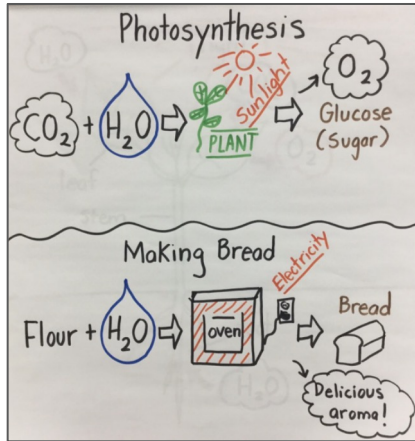 Photosynthesis
CO2 + H2O
PLANT
Sunlight
O2
Glucose
(Sugar)
Making Bread
Flour + H2O
oven
Electricity
Bread
Delicious
aroma!
H2O
leaf
stem
O2
H2O